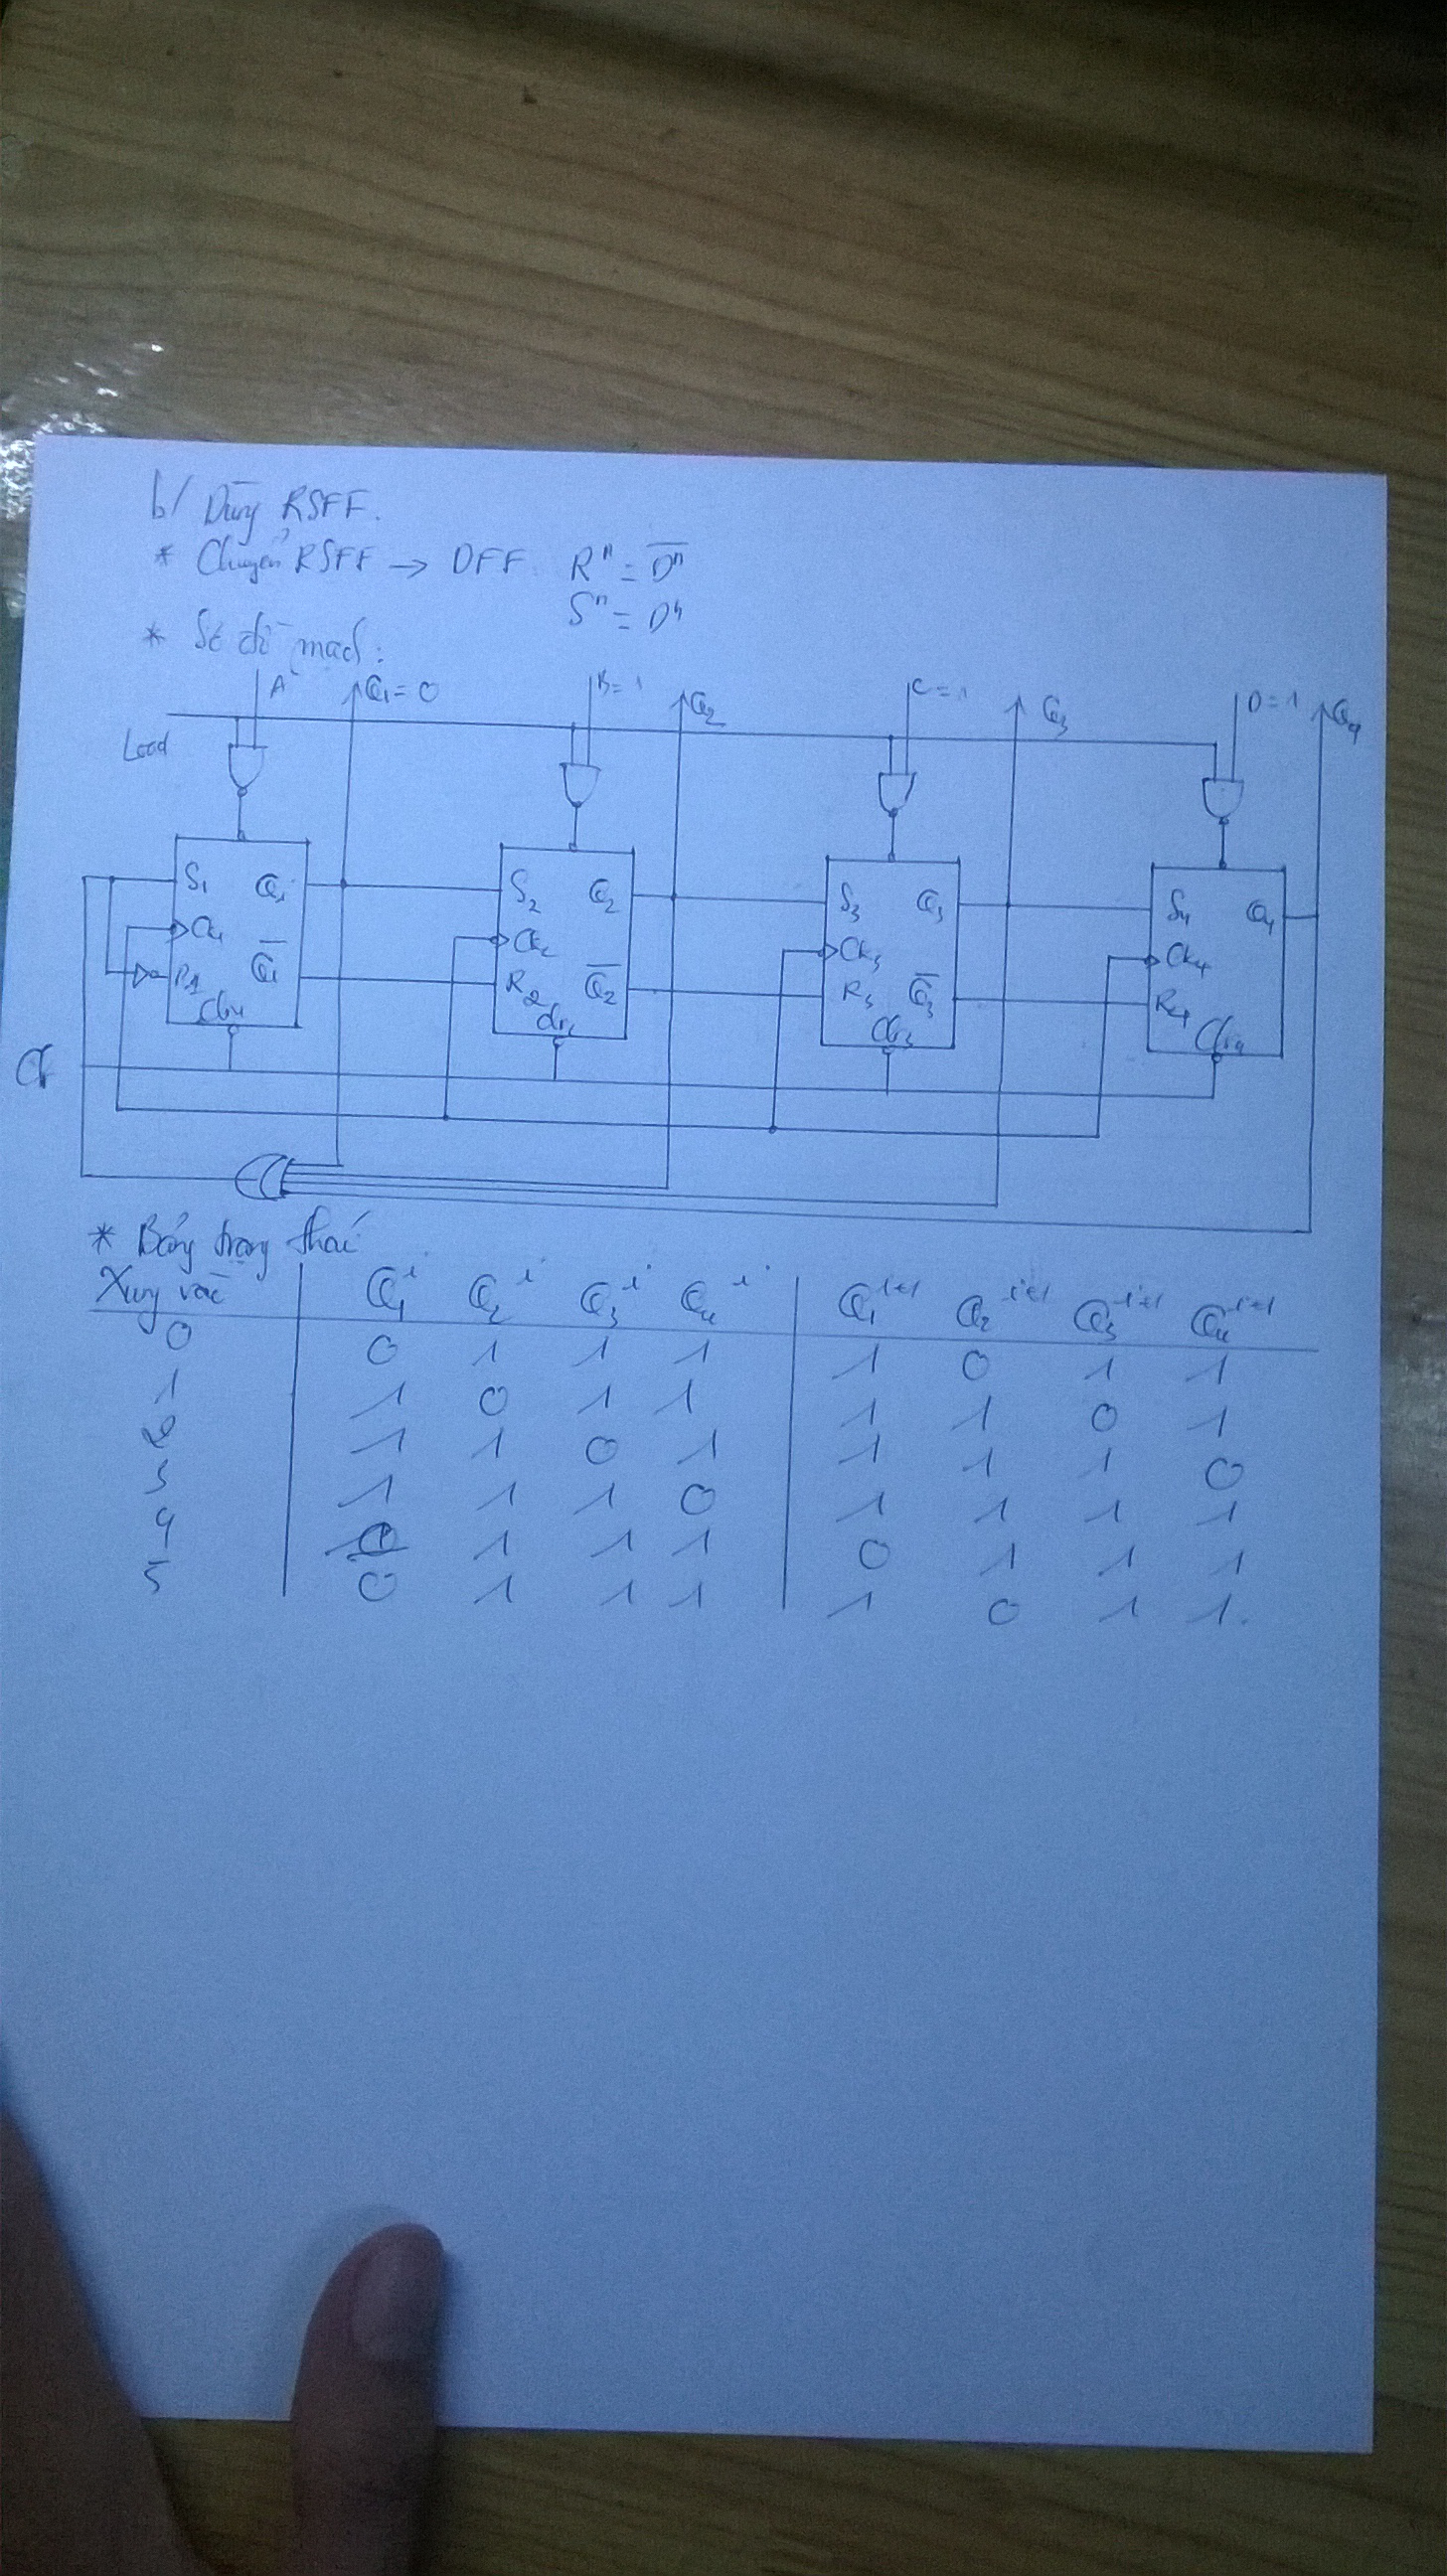 b/ Dùng RSFF.
* Chuyển RSFF → DFF. Rⁿ = D̅ⁿ
Sⁿ = Dⁿ
* Sơ đồ mạch:
A Q₁ = 0 B = 1 Q₂ C = 1 Q₃ D = 1 Q₄
Load
S₁ Q₁ S₂ Q₂ S₃ Q₃ S₄ Q₄
Ck₁ Ck₂ Ck₃ Ck₄
R1 Q̅₁ R₂ Q̅₂ R₃ Q̅₃ R₄
Clr₁ Clr₂ Clr₃ Clr₄
* Bảng trạng thái
Xung vào Q₁ⁱ Q₂ⁱ Q₃ⁱ Q₄ⁱ Q₁ⁱ⁺¹ Q₂ⁱ⁺¹ Q₃ⁱ⁺¹ Q₄ⁱ⁺¹
0 0 1 1 1 1 0 1 1
1 1 0 1 1 1 1 0 1
2 1 1 0 1 1 1 1 0
3 1 1 1 0 1 1 1 1
4 1 1 1 1 0 1 1 1
5 0 1 1 1 1 0 1 1.